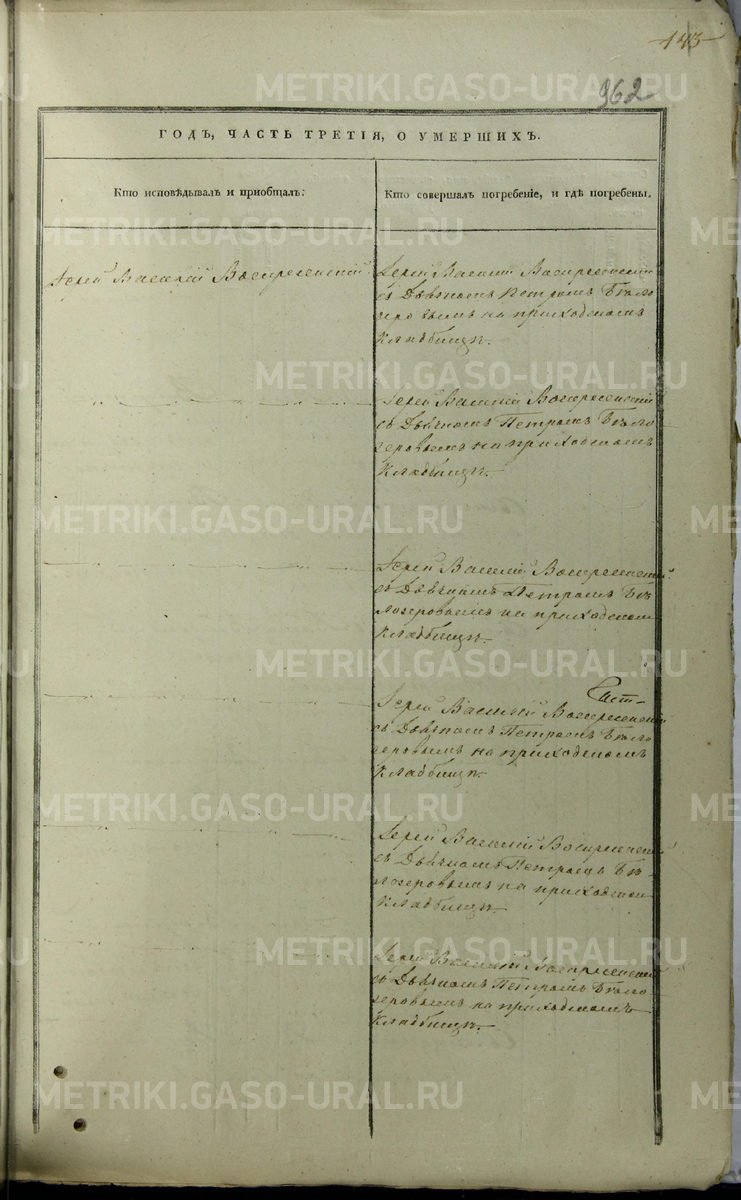 143
962
ГОДЪ, ЧАСТЬ ТРЕТІЯ, О УМЕРШИХЪ.
Кто исповѣдывалъ и приобщалъ:
Кто совершалъ погребеніе, и гдѣ погребены.
Іерей Василій Воскресенскій
Іерей Василій Воскресенскій
съ Дьячкомъ Петромъ Бѣло
зеровымъ на приходскомъ
Кладбищѣ.
Іерей Василій Воскресенскій
съ Дьячкомъ Петромъ Бѣло
зеровымъ на приходскомъ
Кладбищѣ.
Іерей Василій Воскресенскій
съ Дьячкомъ Петромъ Бѣ
лозеровымъ на приходском
Кладбищѣ.
Іерей Василій Воскресенскій
съ Дьячкомъ Петромъ Бѣло
зеровымъ на приходскомъ
Кладбищѣ.
Іерей Василій Воскресенскі
съ Дьячкомъ Петромъ Бѣ
лозеровымъ на приходском
Кладбищѣ.
Іерей Василій Воскресенскі
съ Дьячкомъ Петромъ Бѣло
зеровымъ на приходскомъ
Кладбищѣ.
METRIKI.GASO-URAL.RU